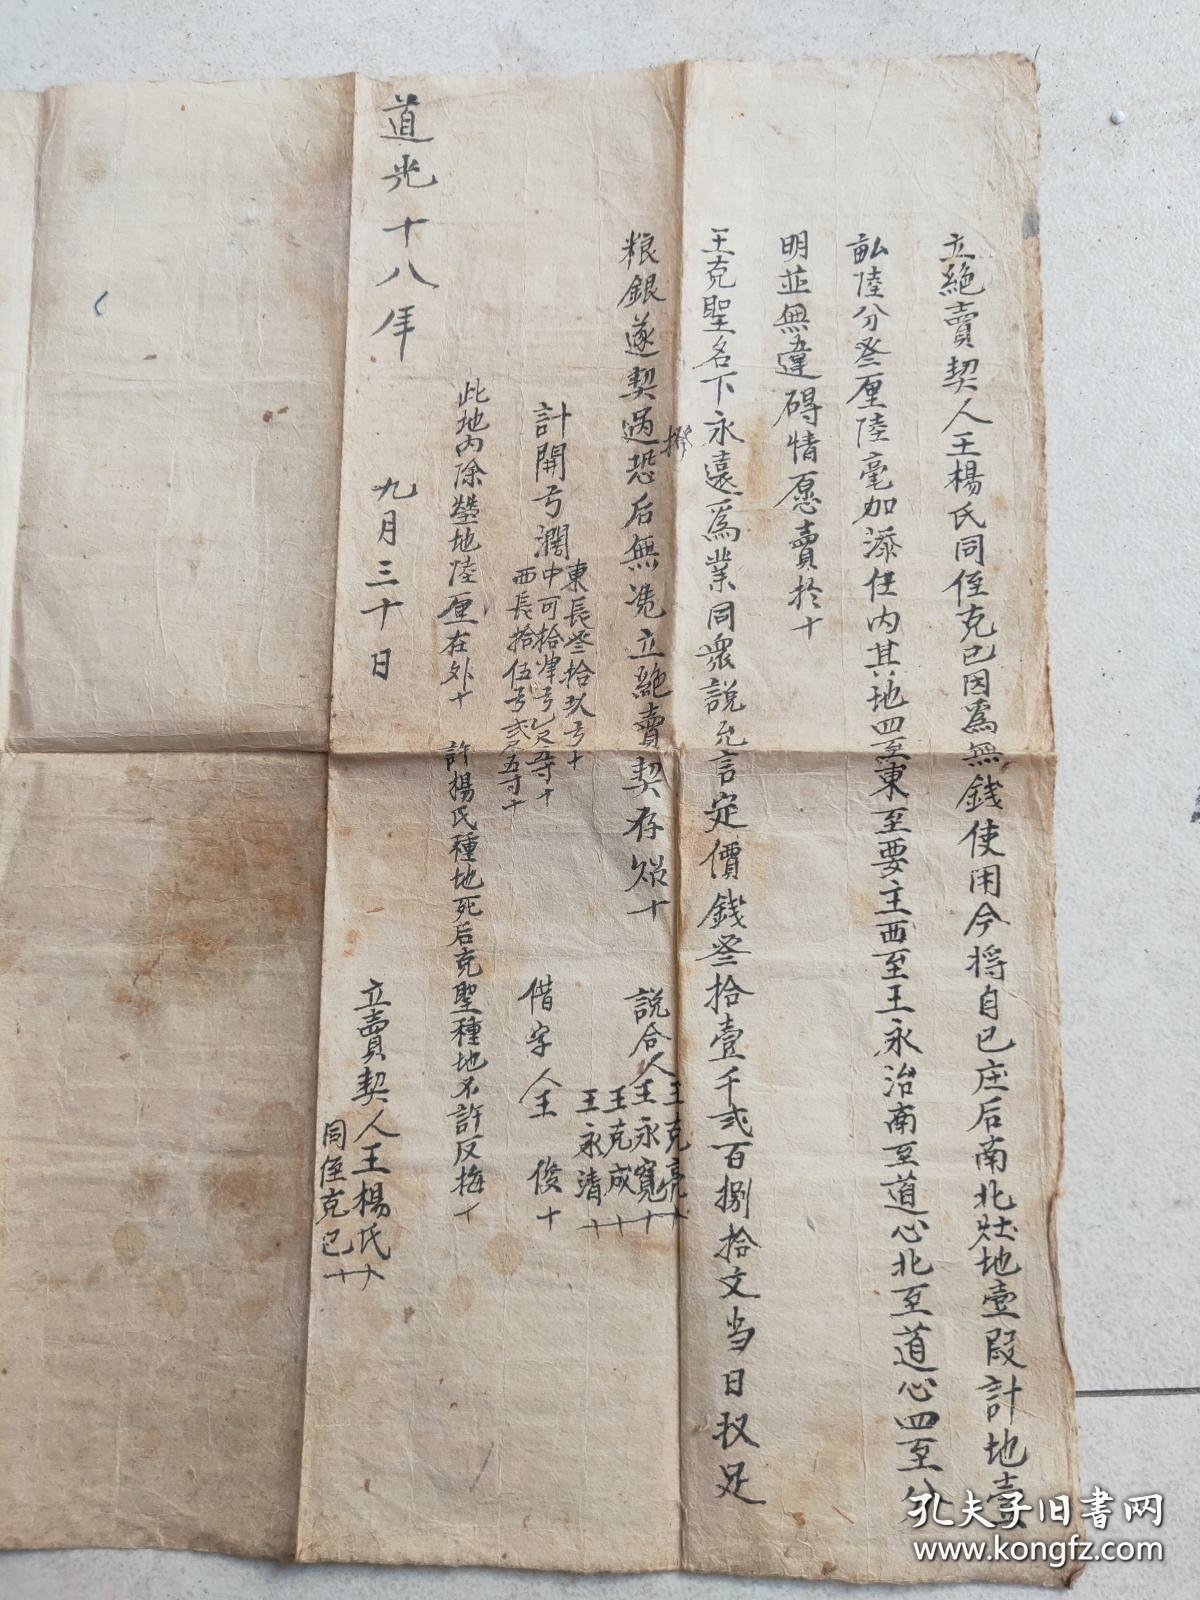 立絶賣契人王楊氏同侄克已因爲無錢使用今将自已庄后南北畛地壹段計地壹
畝陸分叁厘陸毫加添在內其地四至東至要主西至王永治南至道心北至道心四至分
明並無違碍情愿賣於十
王克聖名下永遠爲業同衆說允言定價錢叁拾壹千弍百捌拾文当日収足
粮銀遂契過撥恐后無凭立絶賣契存炤十
說合人 王克亮十 王永寬十 王克成十 王永清十
計開弓濶 東長叁拾玖弓十 中可拾肆弓乙尺五寸十 西長拾伍弓弍尺五寸十
借字人王俊十
此地內除塋地陸厘在外十 許楊氏種地死后克聖種地不許反悔十
道光十八年 九月三十日
立賣契人王楊氏十
同侄克已十
孔夫子旧书网
www.kongfz.com